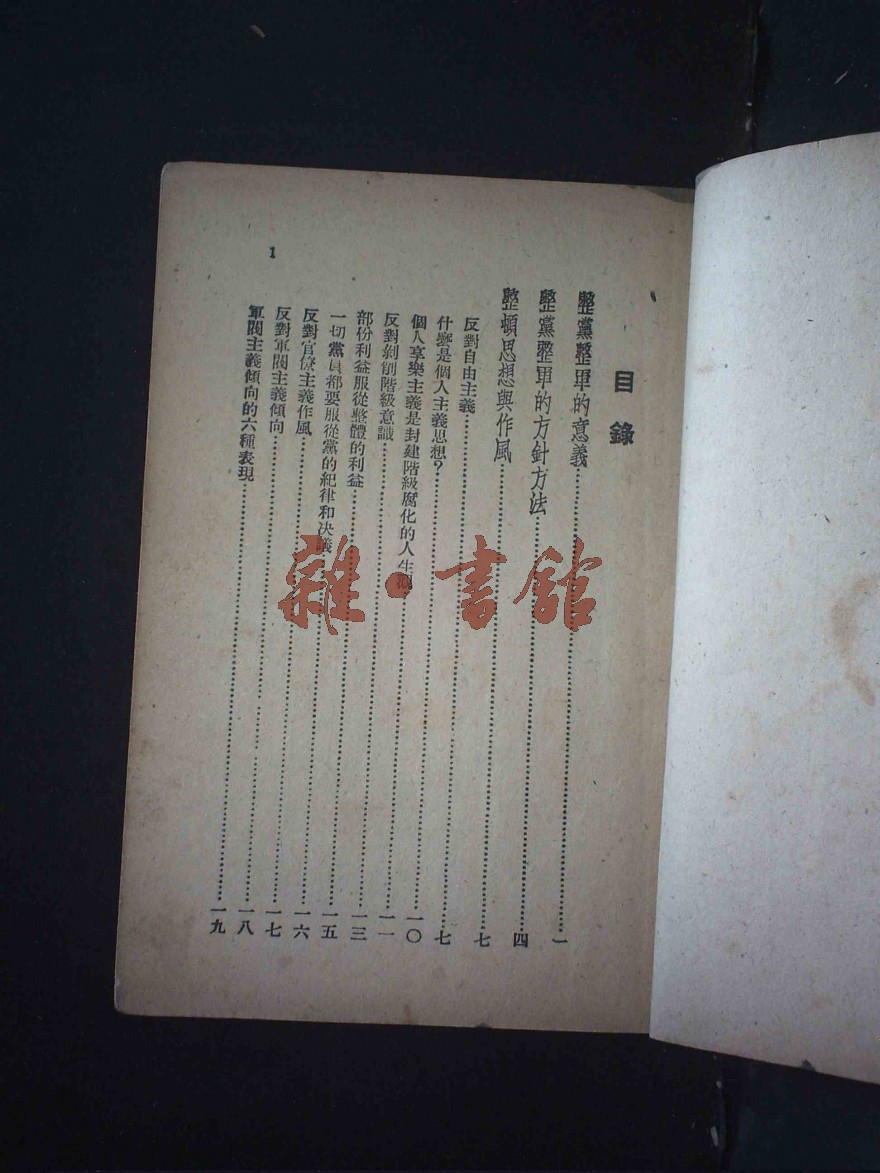 目錄
整黨整軍的意義……一
整黨整軍的方針方法……四
整頓思想與作風……七
反對自由主義……七
什麼是個人主義思想？……一〇
個人享樂主義是封建階級腐化的人生觀……一一
反對剝削階級意識……一三
部份利益服從整體的利益……一五
一切黨員都要服從黨的紀律和决議……一六
反對官僚主義作風……一七
反對軍閥主義傾向……一八
軍閥主義傾向的六種表現……一九
1
雜·書館